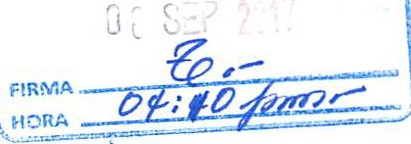 SEP 2017
FIRMA
HORA 04:40 pm